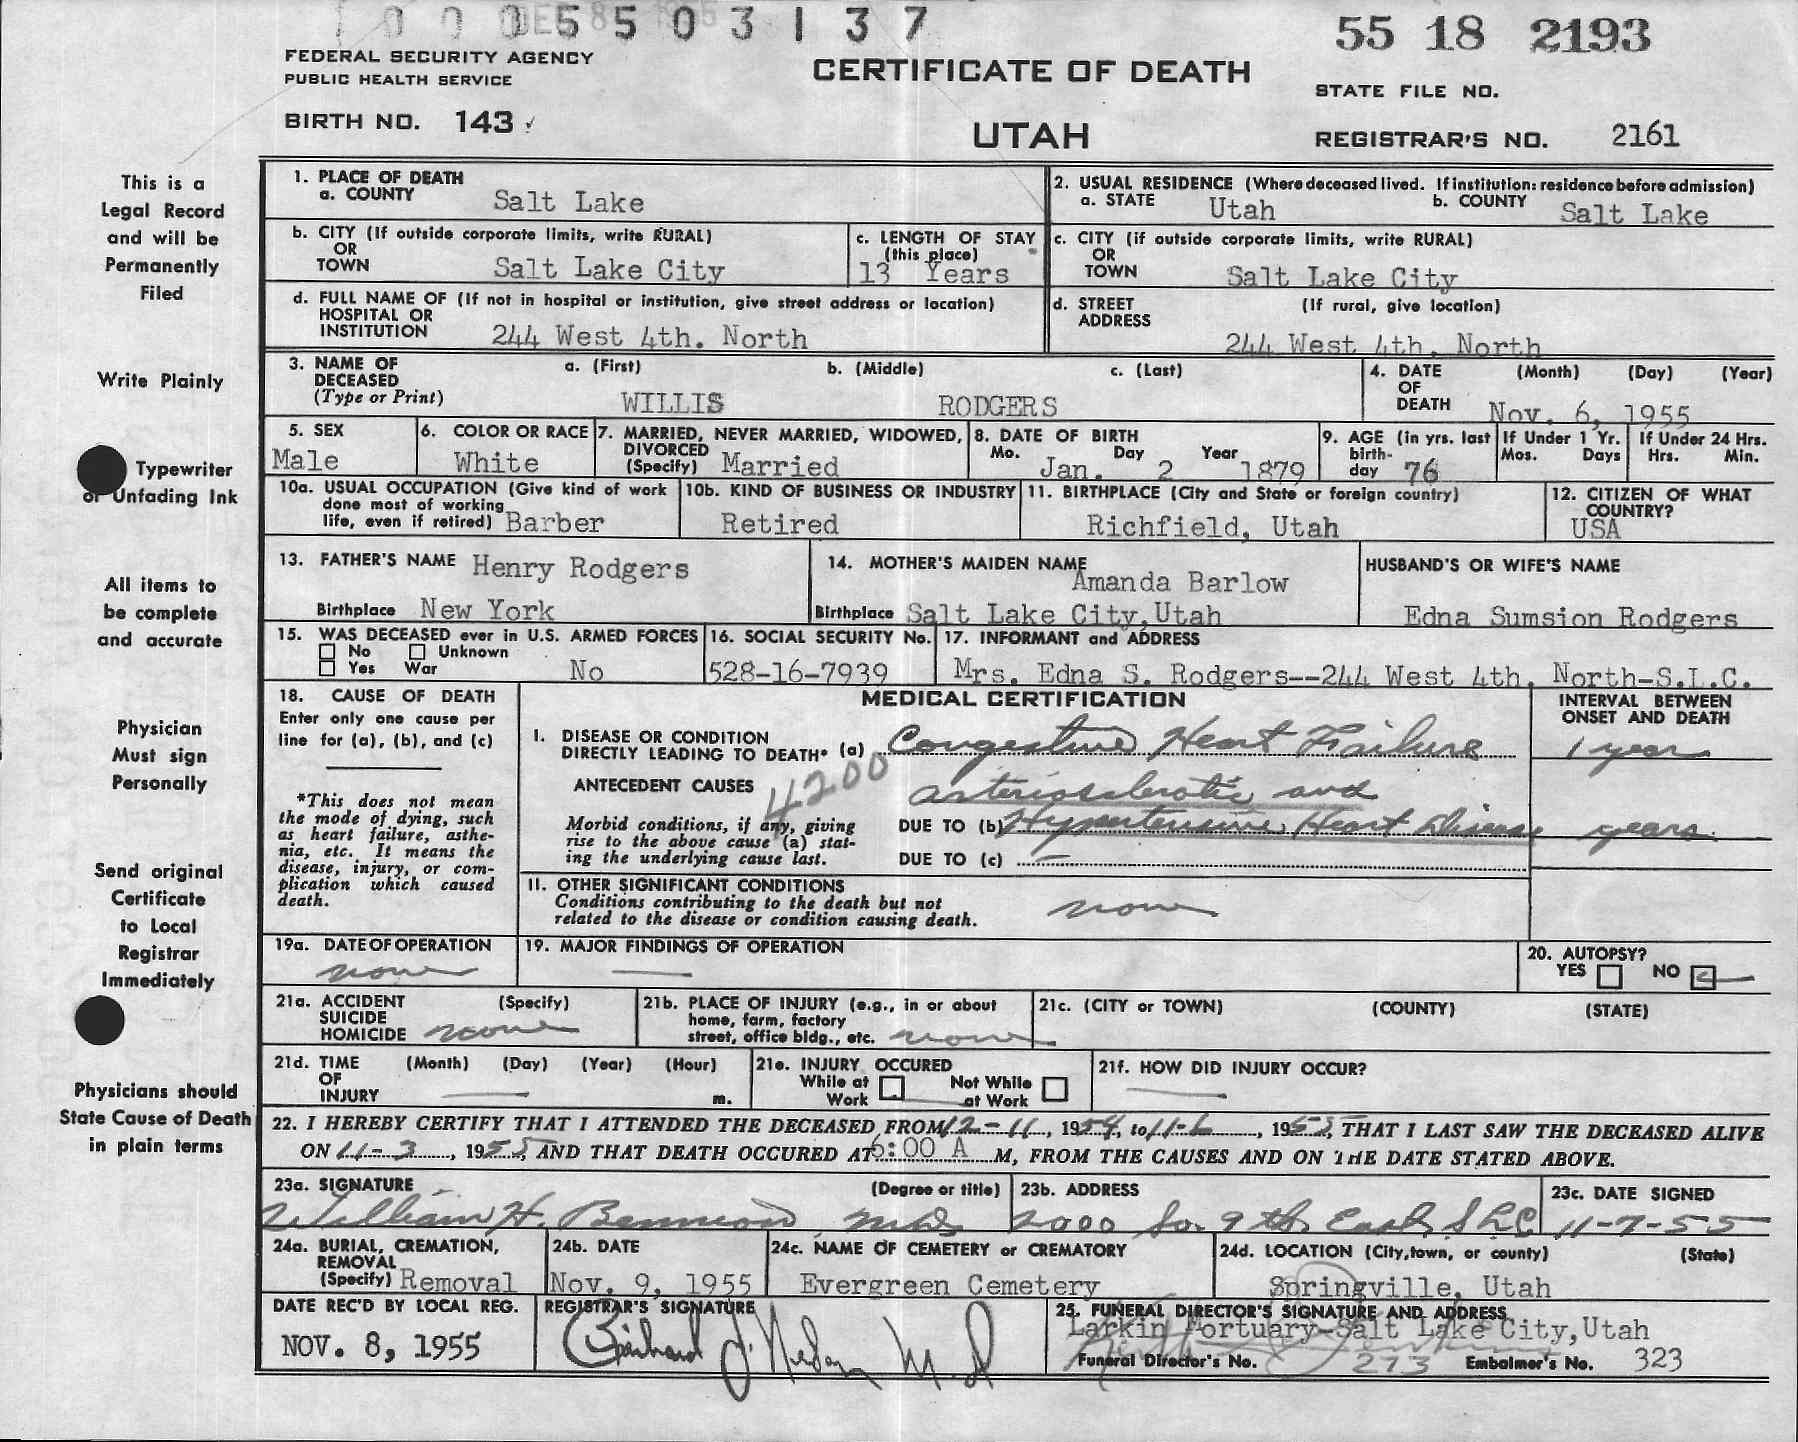 1 0 0 0 5 5 0 3 1 3 7
55 18 2193
FEDERAL SECURITY AGENCY
PUBLIC HEALTH SERVICE
CERTIFICATE OF DEATH
STATE FILE NO.
BIRTH NO. 143
UTAH
REGISTRAR'S NO. 2161
This is a
Legal Record
and will be
Permanently
Filed
Write Plainly
Typewriter
or Unfading Ink
All items to
be complete
and accurate
Physician
Must sign
Personally
Send original
Certificate
to Local
Registrar
Immediately
Physicians should
State Cause of Death
in plain terms
1. PLACE OF DEATH
a. COUNTY Salt Lake
2. USUAL RESIDENCE (Where deceased lived. If institution: residence before admission)
a. STATE Utah b. COUNTY Salt Lake
b. CITY (If outside corporate limits, write RURAL)
OR
TOWN Salt Lake City
c. LENGTH OF STAY
(this place)
13 Years
c. CITY (if outside corporate limits, write RURAL)
OR
TOWN Salt Lake City
d. FULL NAME OF (If not in hospital or institution, give street address or location)
HOSPITAL OR
INSTITUTION 244 West 4th. North
d. STREET (If rural, give location)
ADDRESS
244 West 4th. North
3. NAME OF a. (First) b. (Middle) c. (Last)
DECEASED
(Type or Print) WILLIS RODGERS
4. DATE (Month) (Day) (Year)
OF
DEATH Nov. 6, 1955
5. SEX
Male
6. COLOR OR RACE
White
7. MARRIED, NEVER MARRIED, WIDOWED,
DIVORCED
(Specify) Married
8. DATE OF BIRTH
Mo. Day Year
Jan. 2 1879
9. AGE (in yrs. last
birth-
day 76
If Under 1 Yr.
Mos. Days
If Under 24 Hrs.
Hrs. Min.
10a. USUAL OCCUPATION (Give kind of work
done most of working
life, even if retired) Barber
10b. KIND OF BUSINESS OR INDUSTRY
Retired
11. BIRTHPLACE (City and State or foreign country)
Richfield, Utah
12. CITIZEN OF WHAT
COUNTRY?
USA
13. FATHER'S NAME Henry Rodgers
Birthplace New York
14. MOTHER'S MAIDEN NAME
Amanda Barlow
Birthplace Salt Lake City,Utah
HUSBAND'S OR WIFE'S NAME
Edna Sumsion Rodgers
15. WAS DECEASED ever in U.S. ARMED FORCES
No Unknown
Yes War No
16. SOCIAL SECURITY No.
528-16-7939
17. INFORMANT and ADDRESS
Mrs. Edna S. Rodgers--244 West 4th. North-S.L.C.
18. CAUSE OF DEATH
Enter only one cause per
line for (a), (b), and (c)
*This does not mean
the mode of dying, such
as heart failure, asthe-
nia, etc. It means the
disease, injury, or com-
plication which caused
death.
MEDICAL CERTIFICATION
INTERVAL BETWEEN
ONSET AND DEATH
I. DISEASE OR CONDITION
DIRECTLY LEADING TO DEATH* (a) Congestive Heart Failure 1 year
ANTECEDENT CAUSES 4200 arteriosclerotic and
Morbid conditions, if any, giving
rise to the above cause (a) stat-
ing the underlying cause last.
DUE TO (b) Hypertensive Heart Disease years.
DUE TO (c) —
II. OTHER SIGNIFICANT CONDITIONS
Conditions contributing to the death but not
related to the disease or condition causing death.
none
19a. DATE OF OPERATION
none
19. MAJOR FINDINGS OF OPERATION
—
20. AUTOPSY?
YES NO
21a. ACCIDENT (Specify)
SUICIDE
HOMICIDE none
21b. PLACE OF INJURY (e.g., in or about
home, farm, factory
street, office bldg., etc. none
21c. (CITY or TOWN) (COUNTY) (STATE)
21d. TIME (Month) (Day) (Year) (Hour)
OF
INJURY — m.
21e. INJURY OCCURED
While at Not While
Work at Work
21f. HOW DID INJURY OCCUR?
—
22. I HEREBY CERTIFY THAT I ATTENDED THE DECEASED FROM 12-11, 1954, to 11-6, 1955, THAT I LAST SAW THE DECEASED ALIVE
ON 11-3, 1955, AND THAT DEATH OCCURED AT 6:00 A M, FROM THE CAUSES AND ON THE DATE STATED ABOVE.
23a. SIGNATURE (Degree or title)
William H. Bennion MD
23b. ADDRESS
2000 So. 9th East, SLC
23c. DATE SIGNED
11-7-55
24a. BURIAL, CREMATION,
REMOVAL
(Specify) Removal
24b. DATE
Nov. 9, 1955
24c. NAME OF CEMETERY or CREMATORY
Evergreen Cemetery
24d. LOCATION (City,town, or county) (State)
Springville, Utah
DATE REC'D BY LOCAL REG.
NOV. 8, 1955
REGISTRAR'S SIGNATURE
M.D
25. FUNERAL DIRECTOR'S SIGNATURE AND ADDRESS
Larkin Mortuary-Salt Lake City,Utah
Funeral Director's No. 273 Embalmer's No. 323